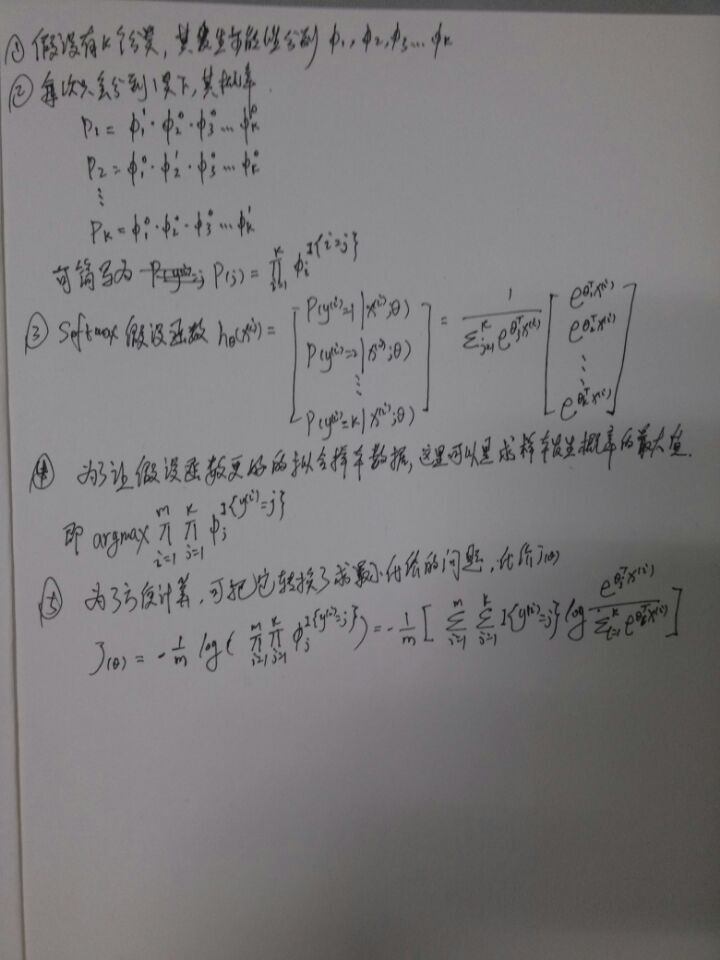 ① 假设有K个分类, 其发生可能性分别 φ₁, φ₂, φ₃ ... φₖ
② 每次只会分到1类下, 其概率
P₁ = φ₁¹ · φ₂⁰ · φ₃⁰ ... φₖ⁰
P₂ = φ₁⁰ · φ₂¹ · φ₃⁰ ... φₖ⁰
⋮
Pₖ = φ₁⁰ · φ₂⁰ · φ₃⁰ ... φₖ¹
可简写为 P(j) = ∏_{i=1}^{K} φᵢ^{I{i=j}}
③ Softmax 假设函数 h_θ(x^{(i)}) = [P(y^{(i)}=1|x^{(i)};θ) P(y^{(i)}=2|x^{(i)};θ) ⋮ P(y^{(i)}=K|x^{(i)};θ)] = 1 / Σ_{j=1}^{K} e^{θ_j^T x^{(i)}} [e^{θ_1^T x^{(i)}} e^{θ_2^T x^{(i)}} ⋮ e^{θ_k^T x^{(i)}}]
④ 为了让假设函数更好的拟合样本数据, 这里可以是求样本发生概率的最大值.
即 argmax ∏_{i=1}^{m} ∏_{j=1}^{K} φ_j^{I{y^{(i)}=j}}
⑤ 为了方便计算, 可把它转换了求最小代价的问题, 代价J(θ)
J(θ) = -1/m log( ∏_{i=1}^{m} ∏_{j=1}^{K} φ_j^{I{y^{(i)}=j}} ) = -1/m [ Σ_{i=1}^{m} Σ_{j=1}^{k} I{y^{(i)}=j} log e^{θ_j^T x^{(i)}} / Σ_{l=1}^{K} e^{θ_l^T x^{(i)}} ]